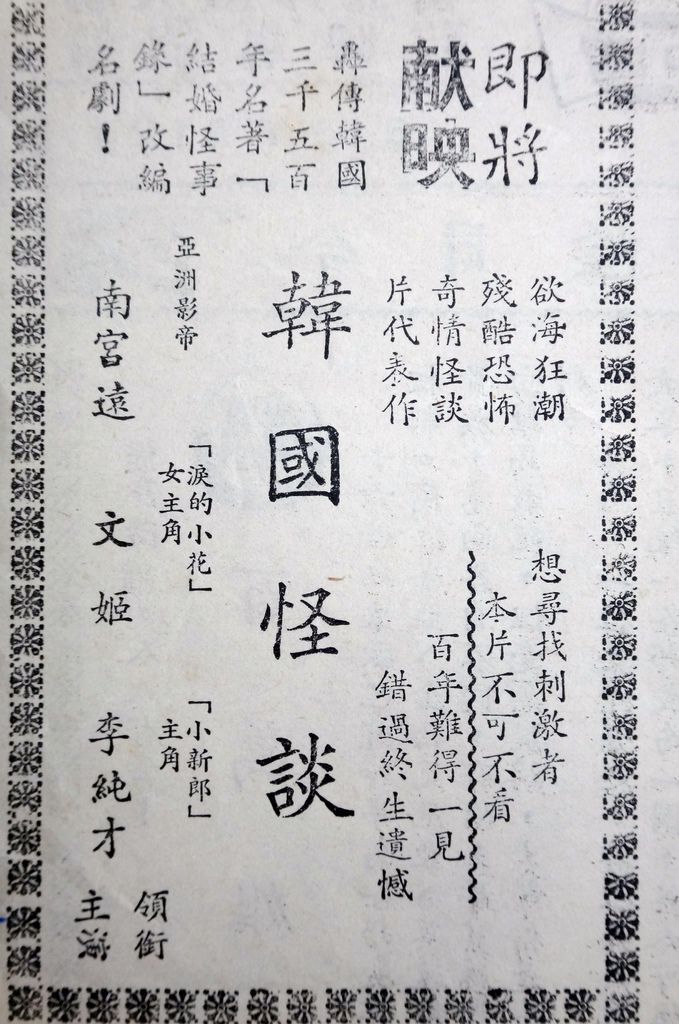 即將
献映
轟傳韓國
三千五百
年名著「
結婚怪事
錄」改編
名劇！
欲海狂潮
殘酷恐怖
奇情怪談
片代表作
想尋找刺激者
本片不可不看
百年難得一見
錯過終生遺憾
韓國怪談
亞洲影帝
南宮遠
「淚的小花」
女主角
文姬
「小新郎」
主角
李純才
領銜
主演